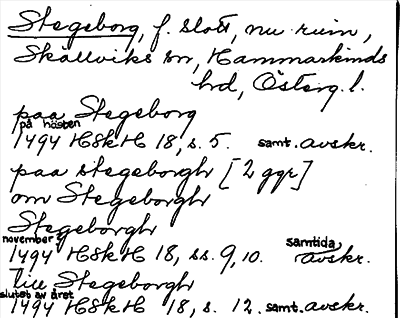 Stegeborg, f. slott, nu ruin,
Skällviks sn, Hammarkinds
hd, Österg. l.
paa Stegeborg
på hösten
1494 HSkH 18, s. 5. samt. avskr.
paa stegeborgh [2 ggr]
om Stegeborgh
Stegeborgh
november
1494 HSkH 18, ss. 9, 10. samtida avskr.
till Stegeborgh
slutet av året
1494 HSkH 18, s. 12. samt. avskr.